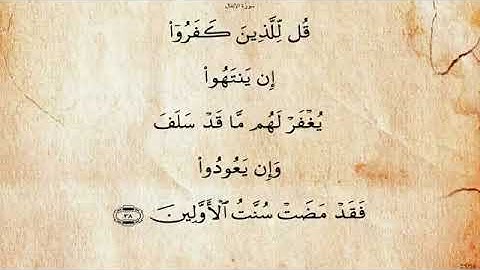 سورة الأنفال
قُل لِّلَّذِينَ كَفَرُوٓا۟
إِن يَنتَهُوا۟
يُغْفَرْ لَهُم مَّا قَدْ سَلَفَ
وَإِن يَعُودُوا۟
فَقَدْ مَضَتْ سُنَّتُ ٱلْأَوَّلِينَ ٣٨